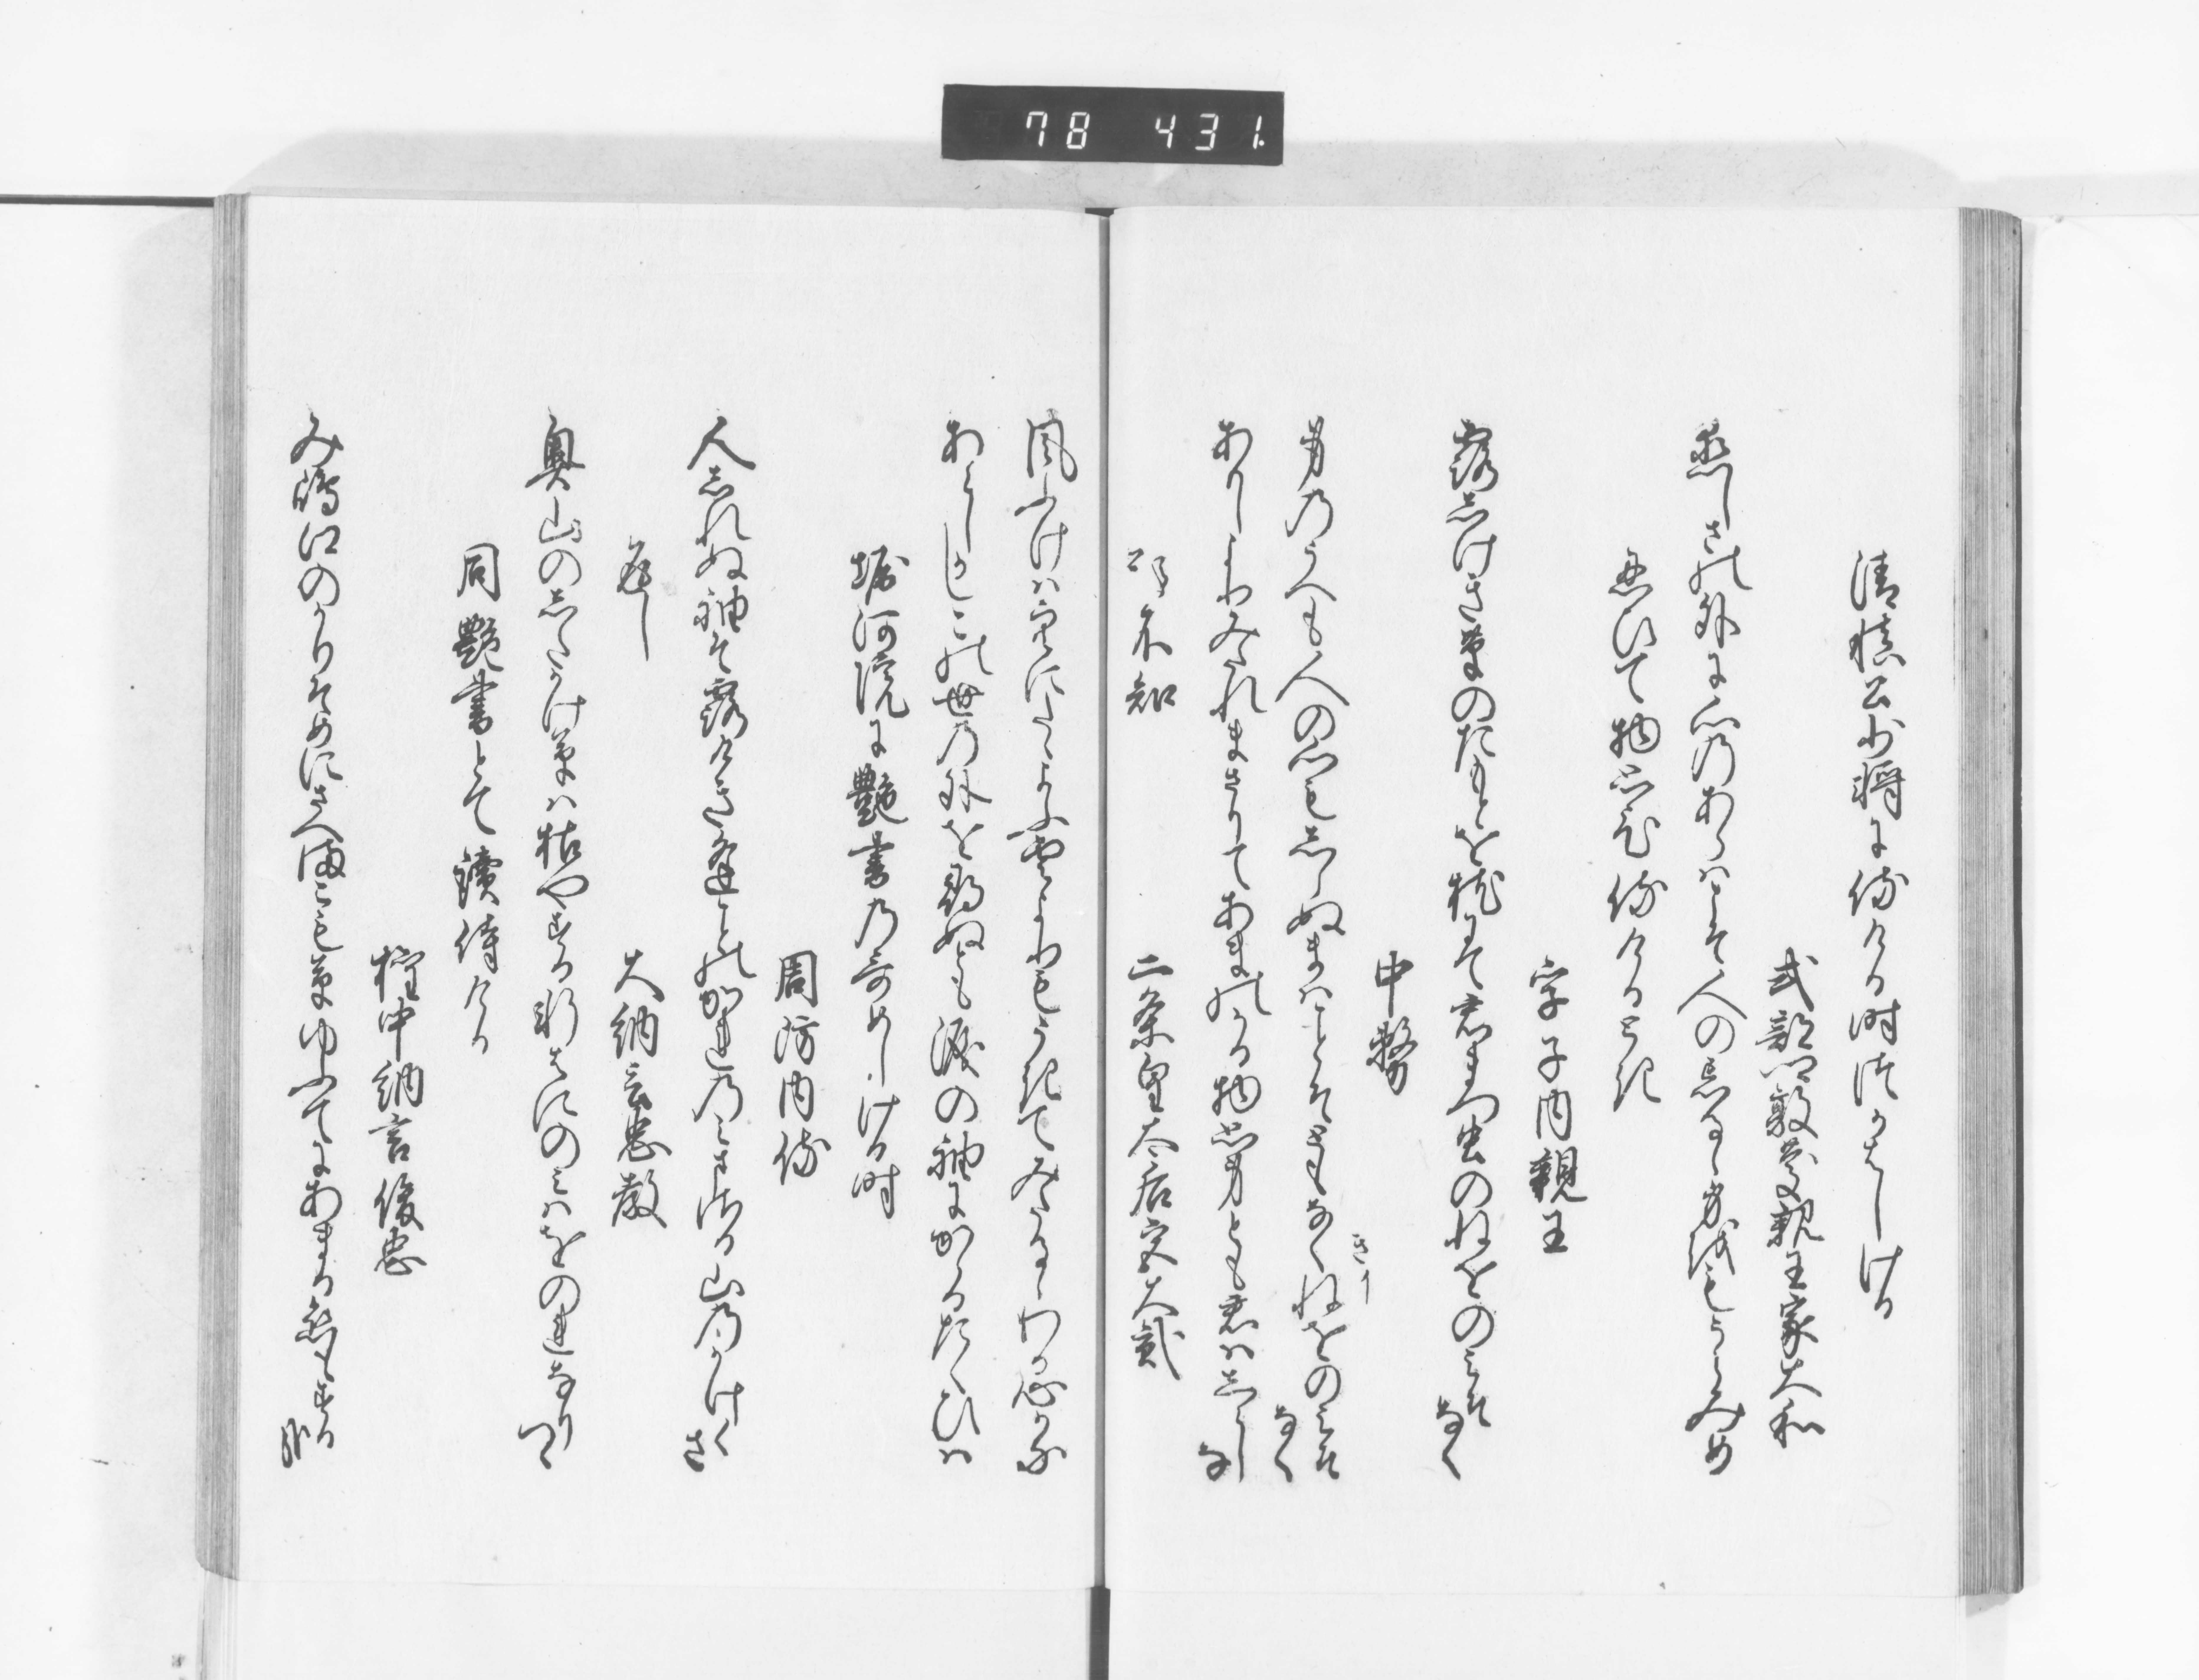 78 431
清慎公少将に侍ける時つかはしける
式部卿敦慶親王家大和
恋しさの外に心のあらはこそ人の忘るゝ身をもうらみめ
忍ひて物思ひ侍けるとき
子内親王
露しけき草のたもとを枕にて君まつ虫のねをのみそなく
中務
身のうへも人の心もしらぬまはことそともなくねをのみそなく
きり
ありしよりみたれまさりてあまのかる物思ふ身とも君はしらしな
題不知 二条皇太后宮大弐
風ふけは空にたゝよふ雲よりもうきてみたるゝわか心かな
あらしかしこの世の外を尋ぬとも涙の袖にかゝるたくひは
堀河院に艶書の哥めしける時
周防内侍
人しれぬ袖そ露けき逢ことのかれのみまさる山のかけくさ
返し 大納言忠教
奥山のしたかけ草は枯やする軒はにのみはをのれなりつゝ
同艶書とて読侍ける
権中納言俊忠
み嶋江のかりそめにさへまこも草ゆふてにあまる恋もする哉